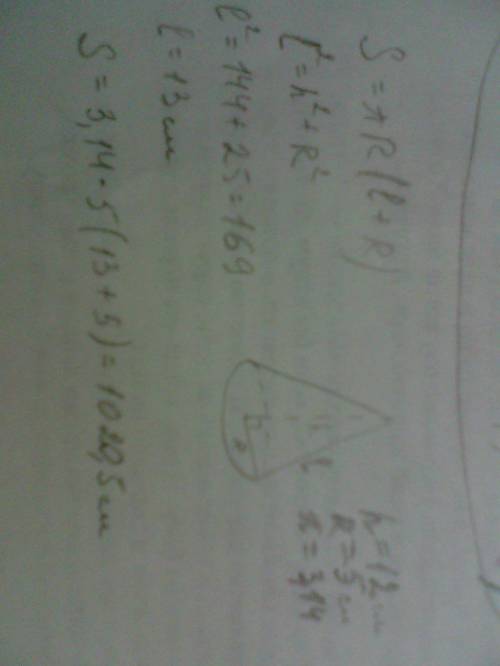 S = πR(l + R)
l² = h² + R²
l² = 144 + 25 = 169
l = 13 см
S = 3,14 · 5(13 + 5) = 1020,5 см
h = 12 см
R = 5 см
π = 3,14
h
R
l